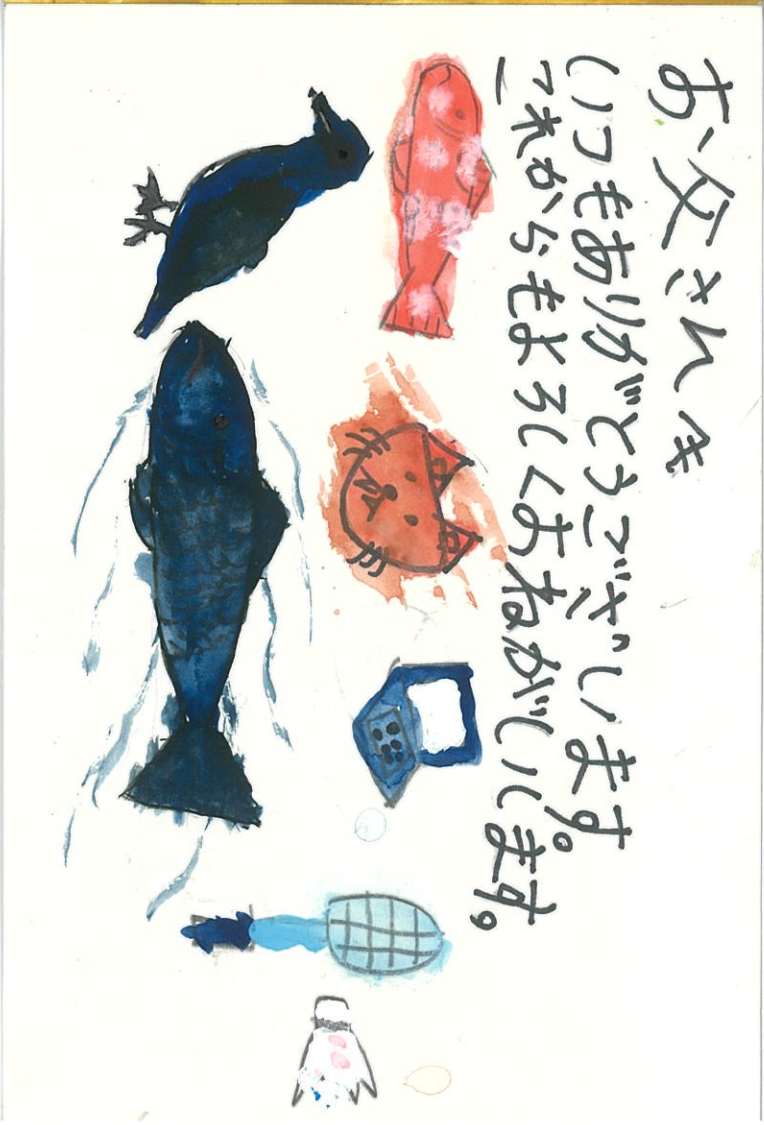 お父さんへ
いつもありがとうございます。
これからもよろしくおねがいします。